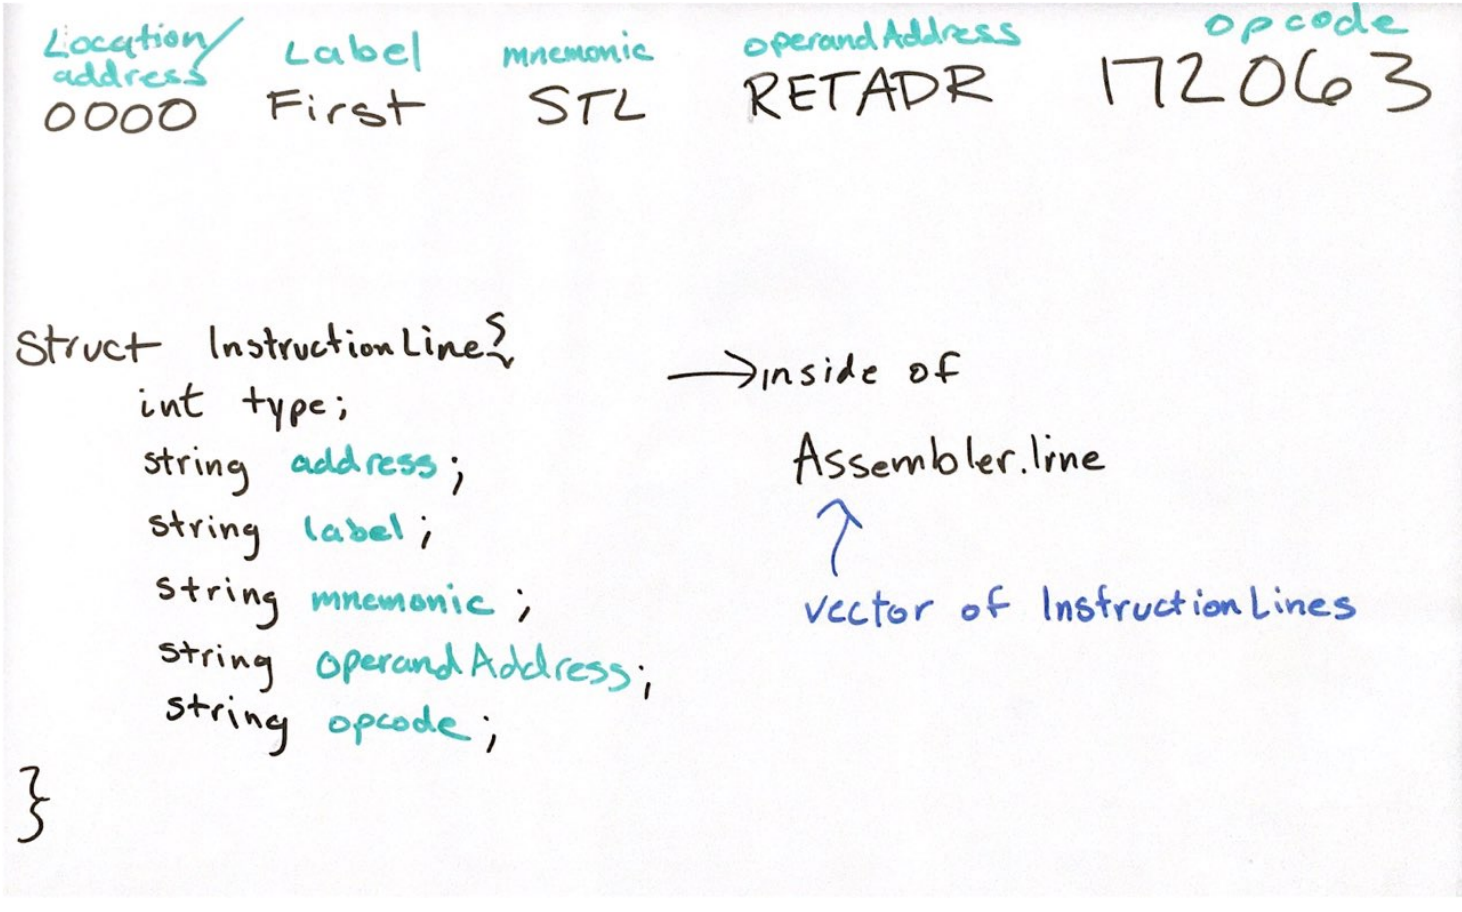 Location/ Label mnemonic operandAddress opcode
address
0000 First STL RETADR 172063
struct InstructionLine{
int type;
string address;
string label;
string mnemonic;
string operandAddress;
string opcode;
}
→ inside of
Assembler.line
vector of InstructionLines